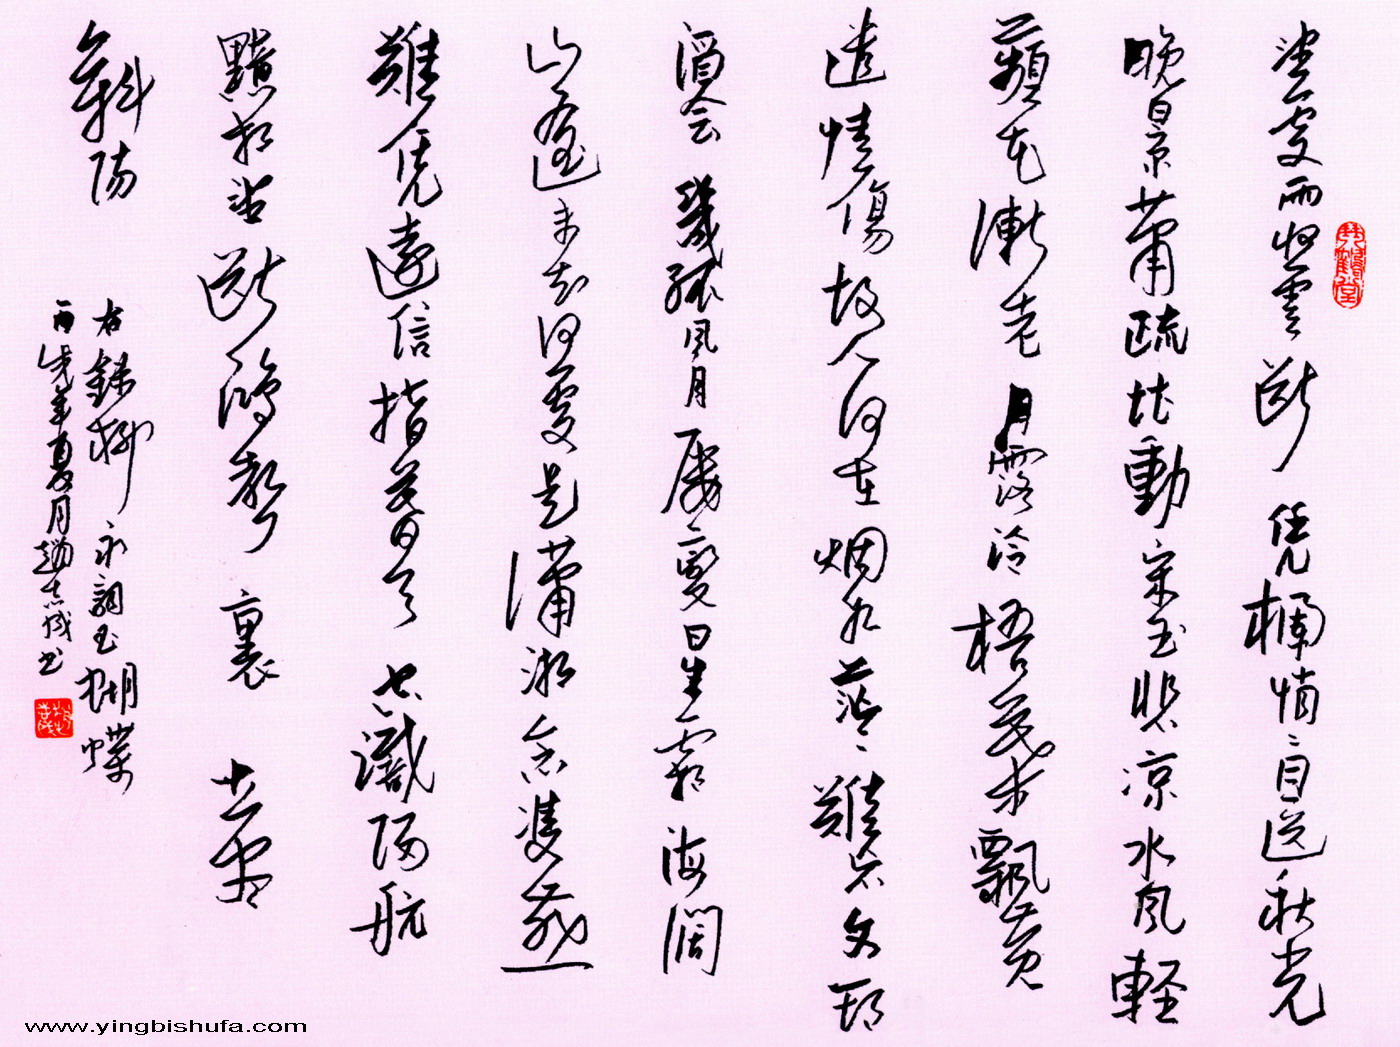 望處雨收雲斷凭欄悄々目送秋光
晚景蕭疏堪動宋玉悲凉水風輕
蘋花漸老月露冷梧葉飄黄
遣情傷故人何在烟水茫々難忘文期
酒会幾孤風月屢變星霜海闊
山遥未知何處是瀟湘念雙燕
難凭遠信指暮天空識歸航
黯相望斷鴻聲裏立盡
斜陽
右錄柳永詞玉蝴蝶
丙戌年夏月趙志成书
www.yingbishufa.com